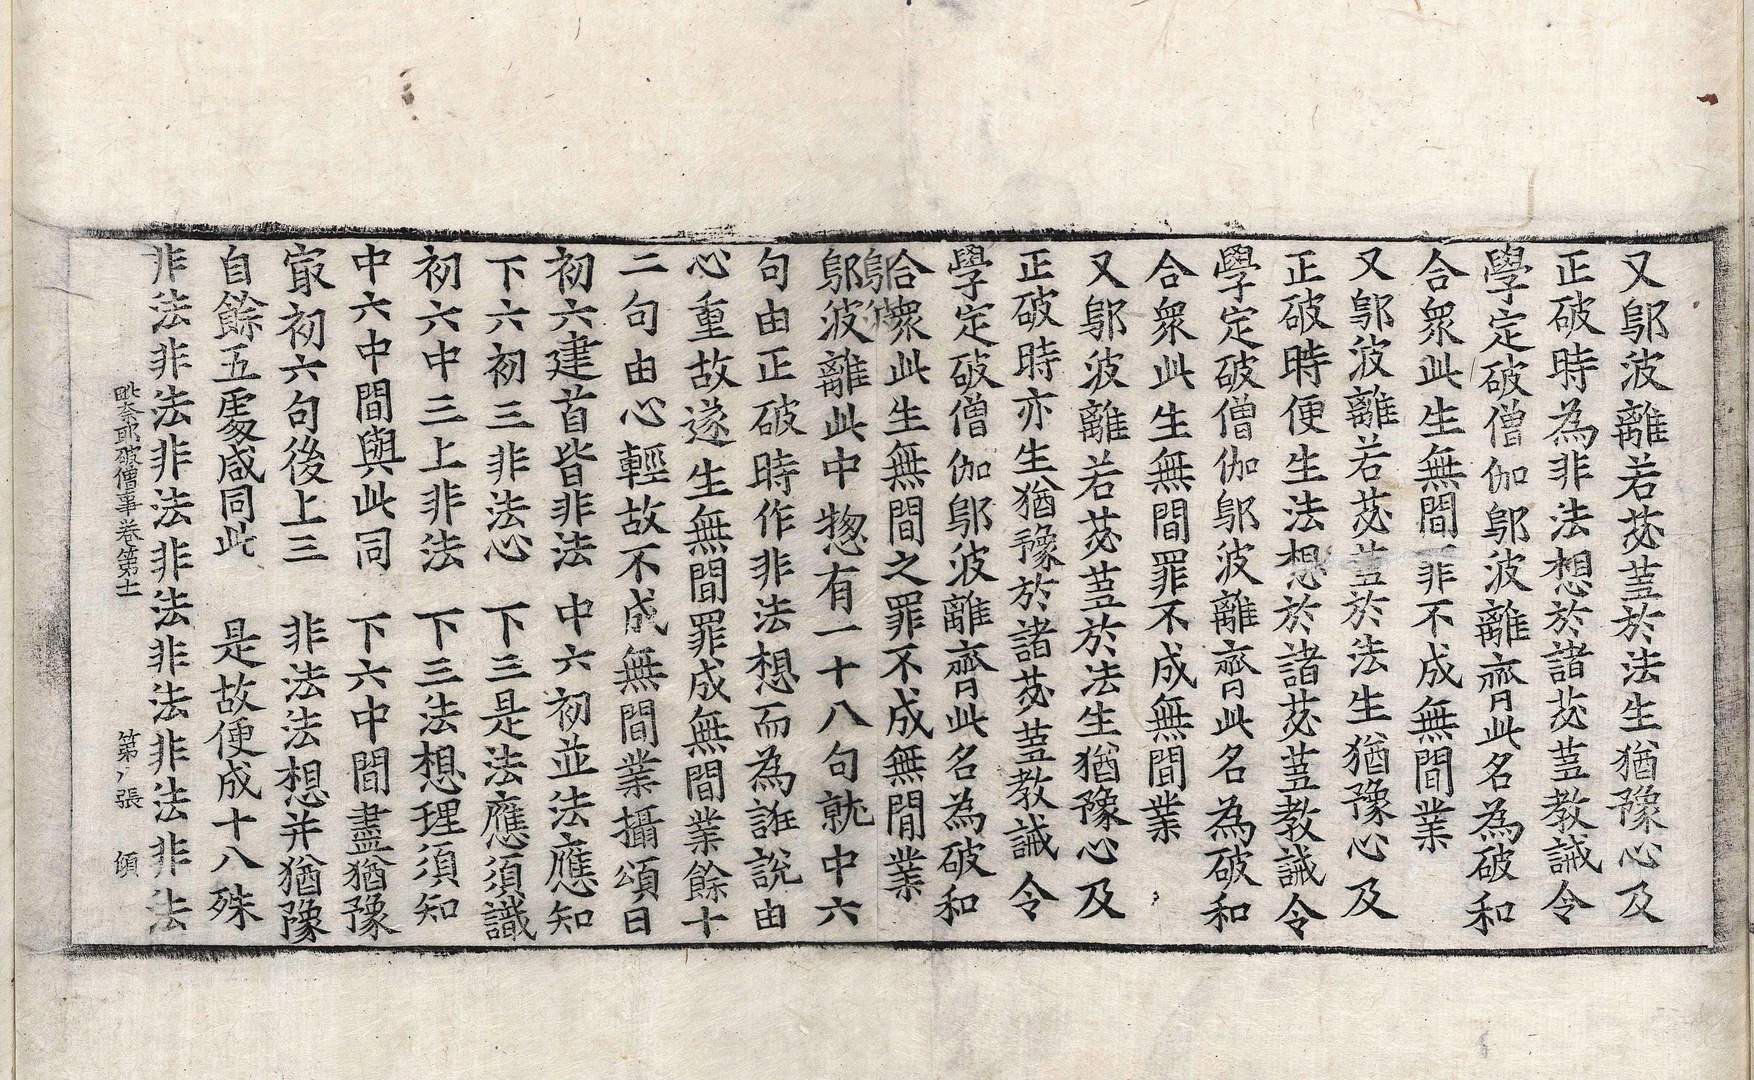 又鄔波離若苾蒭於法生猶豫心及
正破時為非法想於諸苾蒭教誡令
學定破僧伽鄔波離齊此名為破和
合衆此生無間罪不成無間業
又鄔波離若苾蒭於法生猶豫心及
正破時便生法想於諸苾蒭教誡令
學定破僧伽鄔波離齊此名為破和
合衆此生無間罪不成無間業
又鄔波離若苾蒭於法生猶豫心及
正破時亦生猶豫於諸苾蒭教誡令
學定破僧伽鄔波離齊此名為破和
合衆此生無間之罪不成無間業
鄔波離此中惣有一十八句就中六
句由正破時作非法想而為誑說由
心重故遂生無間罪成無間業餘十
二句由心輕故不成無間業攝頌曰
初六建首皆非法 中六初並法應知
下六初三非法心 下三是法應須識
初六中三上非法 下三法想理須知
中六中間與此同 下六中間盡猶豫
㝡初六句後上三 非法法想并猶豫
自餘五處咸同此 是故便成十八殊
非法非法非法非法非法非法非法
毗奈耶破僧事卷第十一 第八張 傾